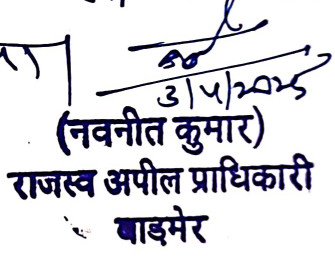 3/4/2025
(नवनीत कुमार)
राजस्व अपील प्राधिकारी
बाडमेर